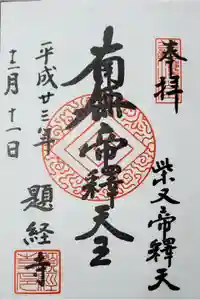 奉拝
柴又帝釋天
南無帝釋天王
平成廿三年
十二月十一日
題経寺